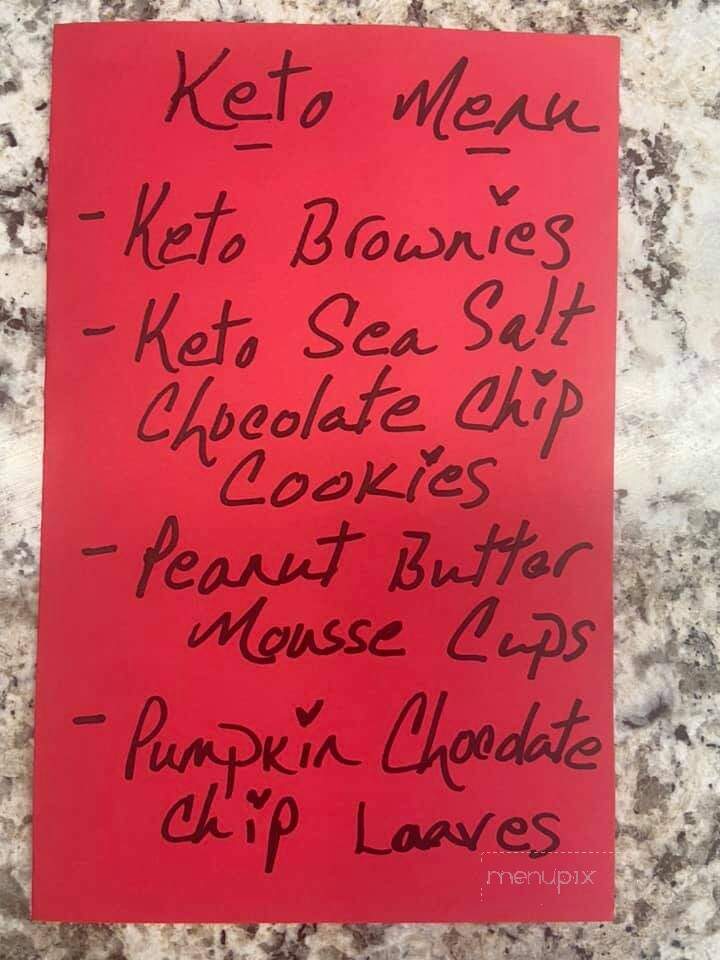 Keto Menu
- Keto Brownies
- Keto Sea Salt
Chocolate Chip
Cookies
- Peanut Butter
Mousse Cups
- Pumpkin Chocolate
Chip Loaves
menupix